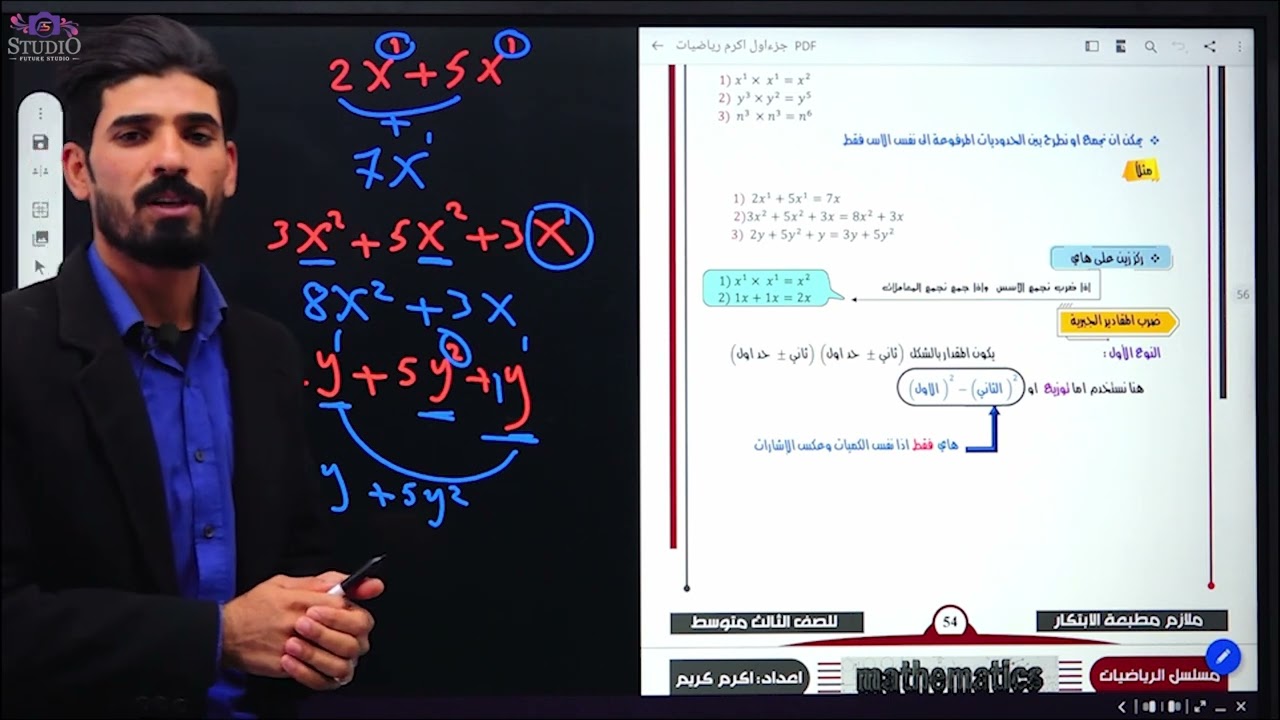 STUDIO
FUTURE STUDIO
2x¹ + 5x¹
+
7x¹
3x² + 5x² + 3x¹
8x² + 3x
y¹ + 5y² + 1y¹
y + 5y²
PDF جزءاول اكرم رياضيات
1) x¹ × x¹ = x²
2) y³ × y² = y⁵
3) n³ × n³ = n⁶
يمكن ان نجمع او نطرح بين الحدوديات المرفوعة الى نفس الاس فقط
مثلاً
1) 2x¹ + 5x¹ = 7x
2)3x² + 5x² + 3x = 8x² + 3x
3) 2y + 5y² + y = 3y + 5y²
ركز زين على هاي
1) x¹ × x¹ = x²
2) 1x + 1x = 2x
اذا ضرب نجمع الاسس واذا جمع نجمع المعاملات
56
ضرب المقادير الجبرية
النوع الأول : يكون المقدار بالشكل (ثاني ± حد اول) (ثاني ± حد اول)
هنا نستخدم اما توزيع او (الثاني)² − (الاول)²
هاي فقط اذا نفس الكميات وعكس الإشارات
ملازم مطبعة الابتكار
54
للصف الثالث متوسط
مسلسل الرياضيات
mathematics
اعداد: اكرم كريم